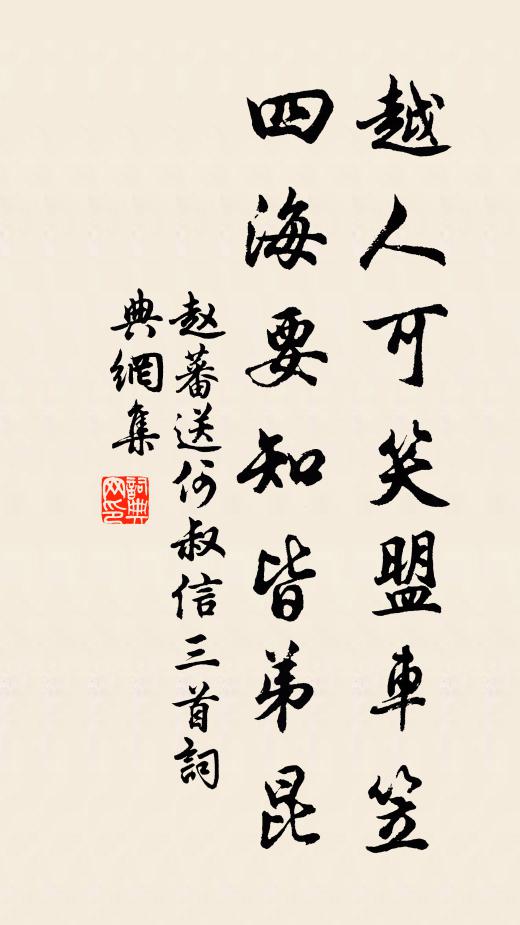 越人可笑盟車笠
四海要知皆弟昆
赵蕃送何叔信三首詞
典網集
詞典网印